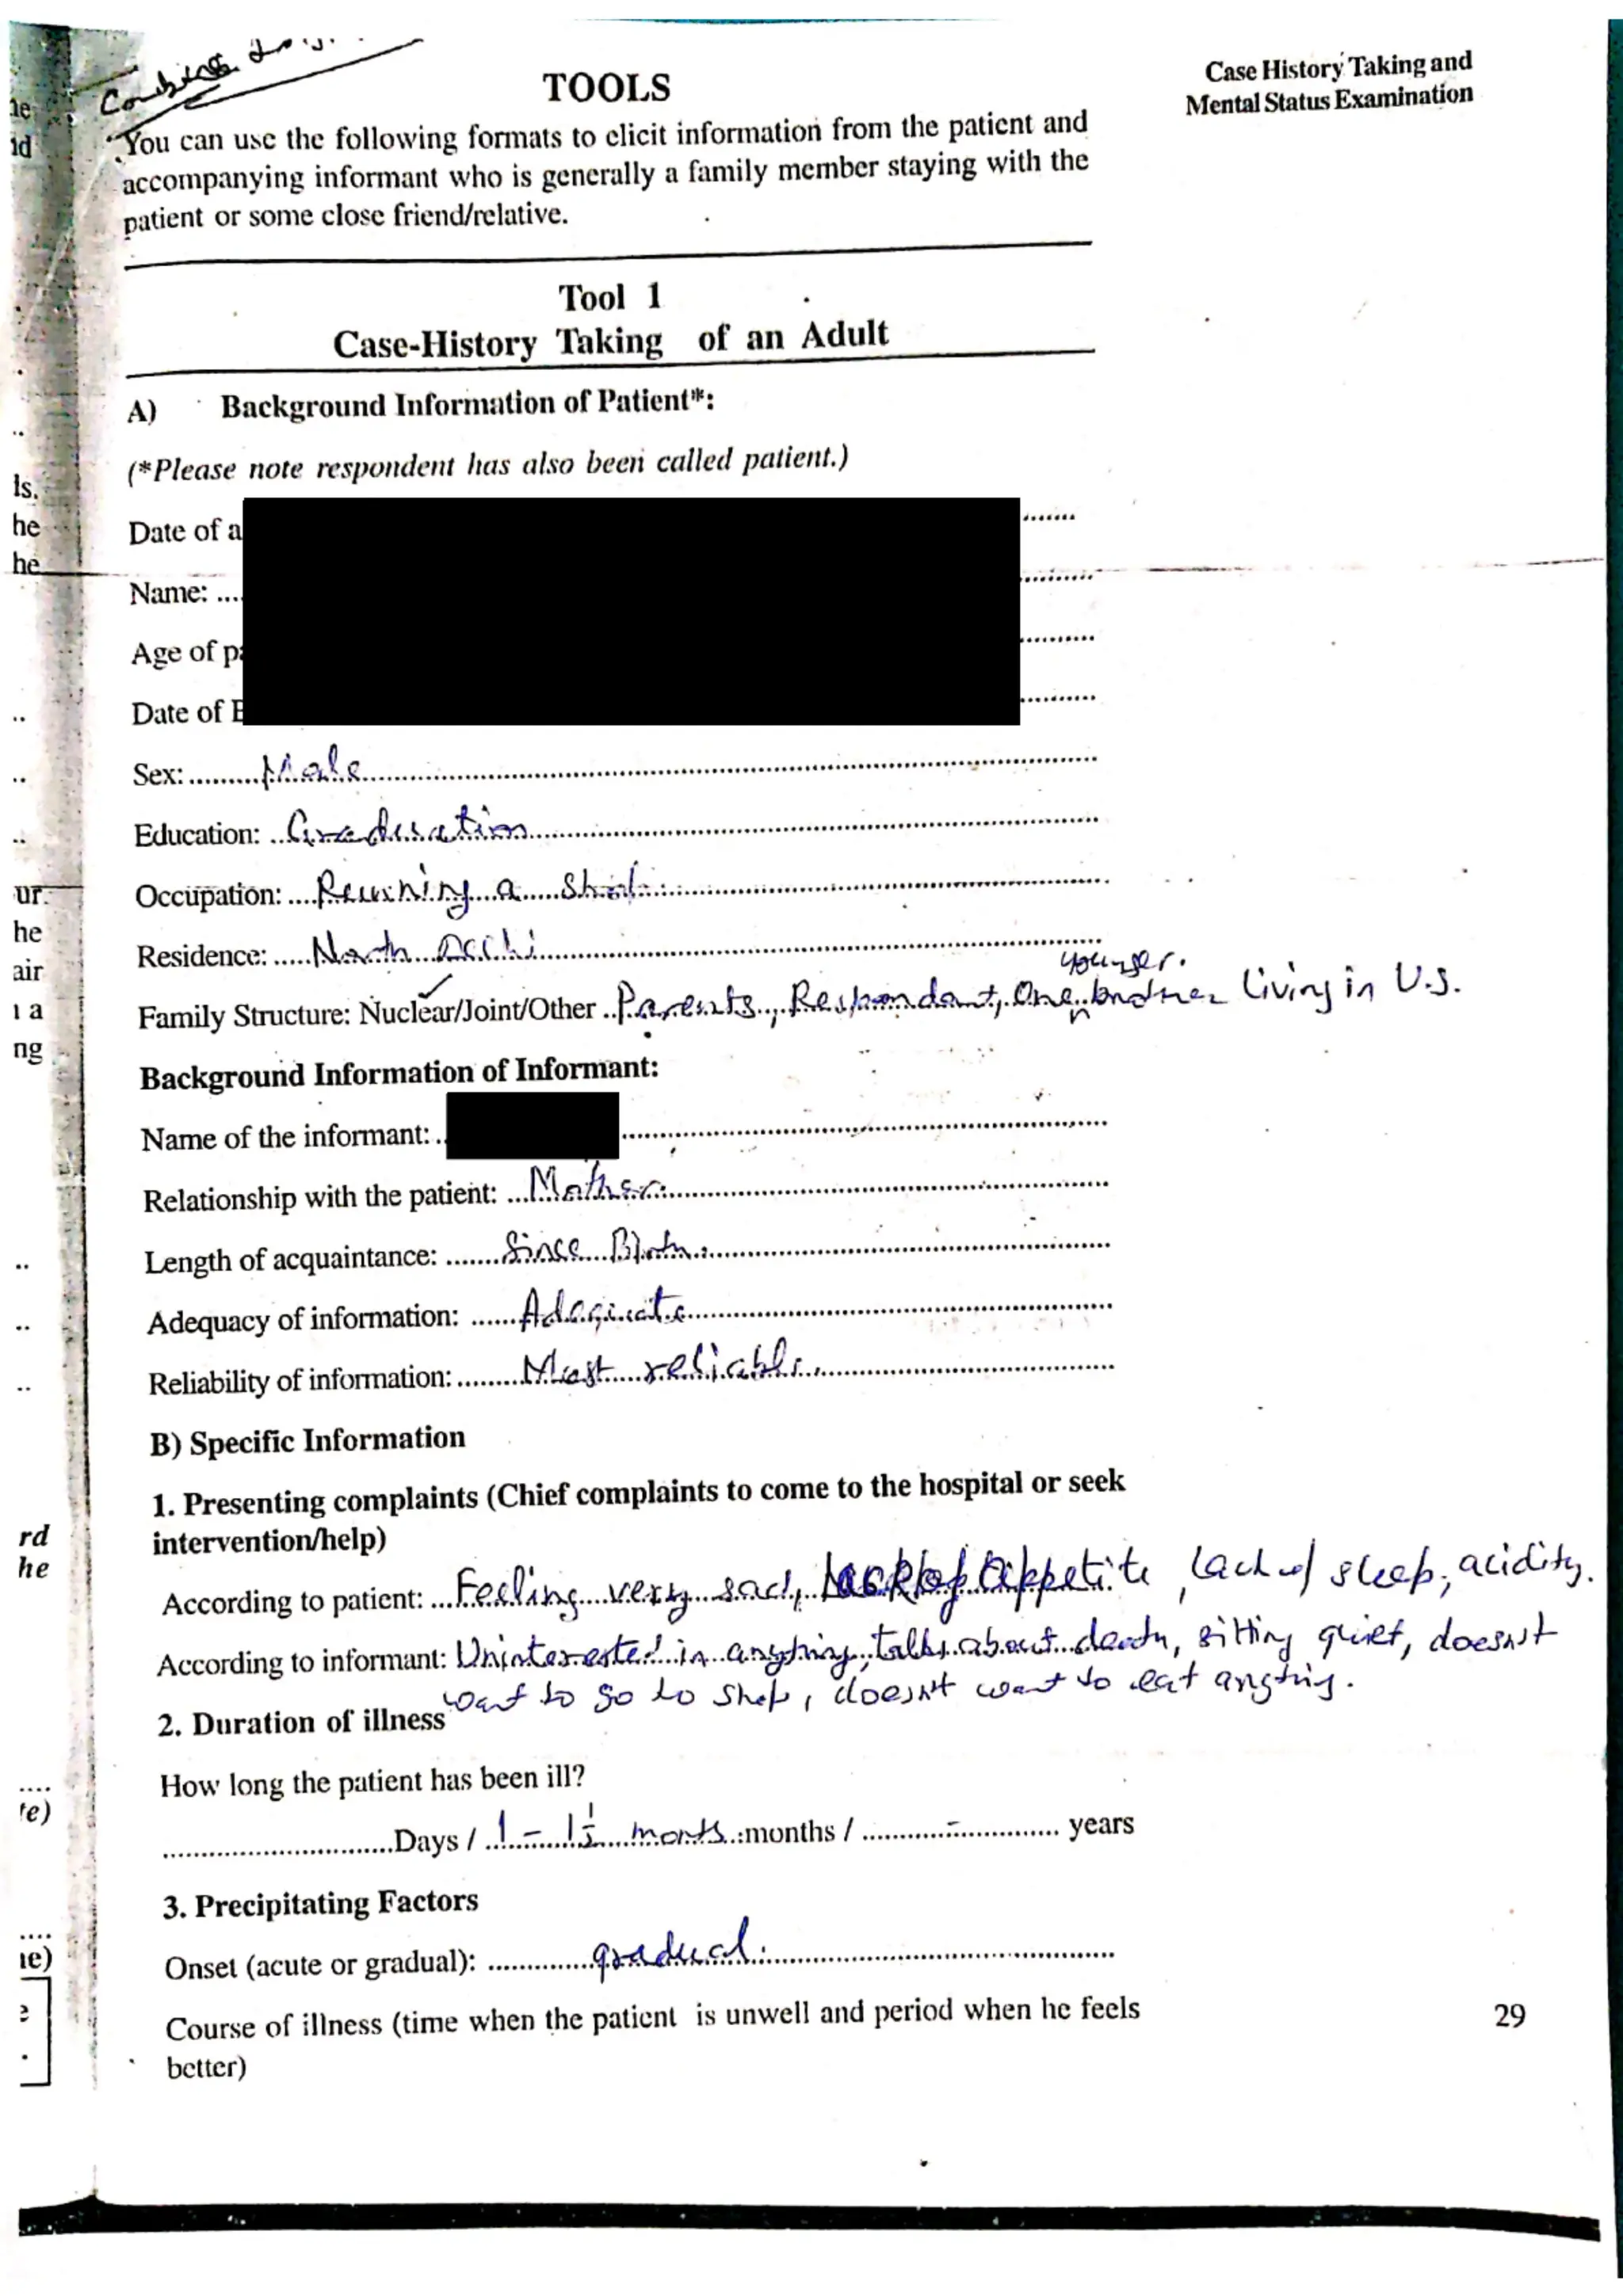 Case History Taking and
Mental Status Examination
TOOLS
You can use the following formats to elicit information from the patient and
accompanying informant who is generally a family member staying with the
patient or some close friend/relative.
Tool 1
Case-History Taking of an Adult
A) Background Information of Patient*:
(*Please note respondent has also been called patient.)
Date of a
Name: ....
Age of pa
Date of B
Sex: Male
Education: Graduation
Occupation: Running a Shop
Residence: North Delhi
younger.
Family Structure: Nuclear/Joint/Other Parents, Respondant, One brother living in U.S.
Background Information of Informant:
Name of the informant:
Relationship with the patient: Mother
Length of acquaintance: Since Birth
Adequacy of information: Adequate
Reliability of information: Most reliable
B) Specific Information
1. Presenting complaints (Chief complaints to come to the hospital or seek
intervention/help)
According to patient: Feeling very sad, Lack of appetite, lack of sleep, acidity.
According to informant: Uninterested in anything, talks about death, sitting quiet, doesn't
want to go to shop, doesn't want to eat anything.
2. Duration of illness
How long the patient has been ill?
Days / 1 - 1½ months months / - years
3. Precipitating Factors
Onset (acute or gradual): gradual.
Course of illness (time when the patient is unwell and period when he feels
better)
29